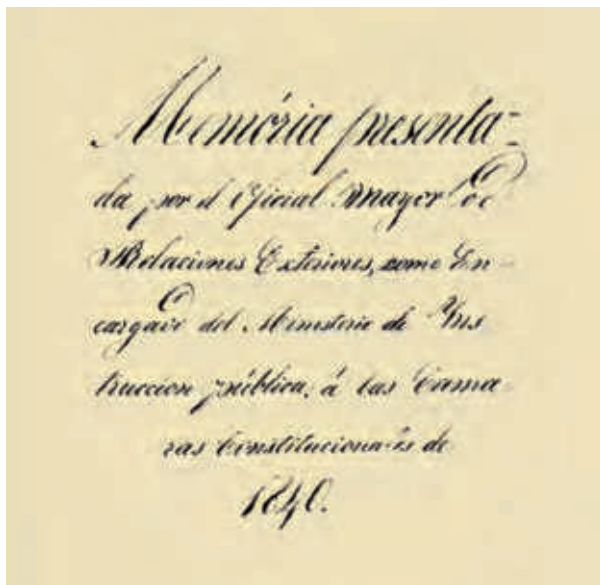 Memória presenta-
da por el Oficial Mayor de
Relaciones Exteriores, como En-
cargado del Ministerio de Ins
truccion pública, á las Cama
ras Constitucionales de
1840.